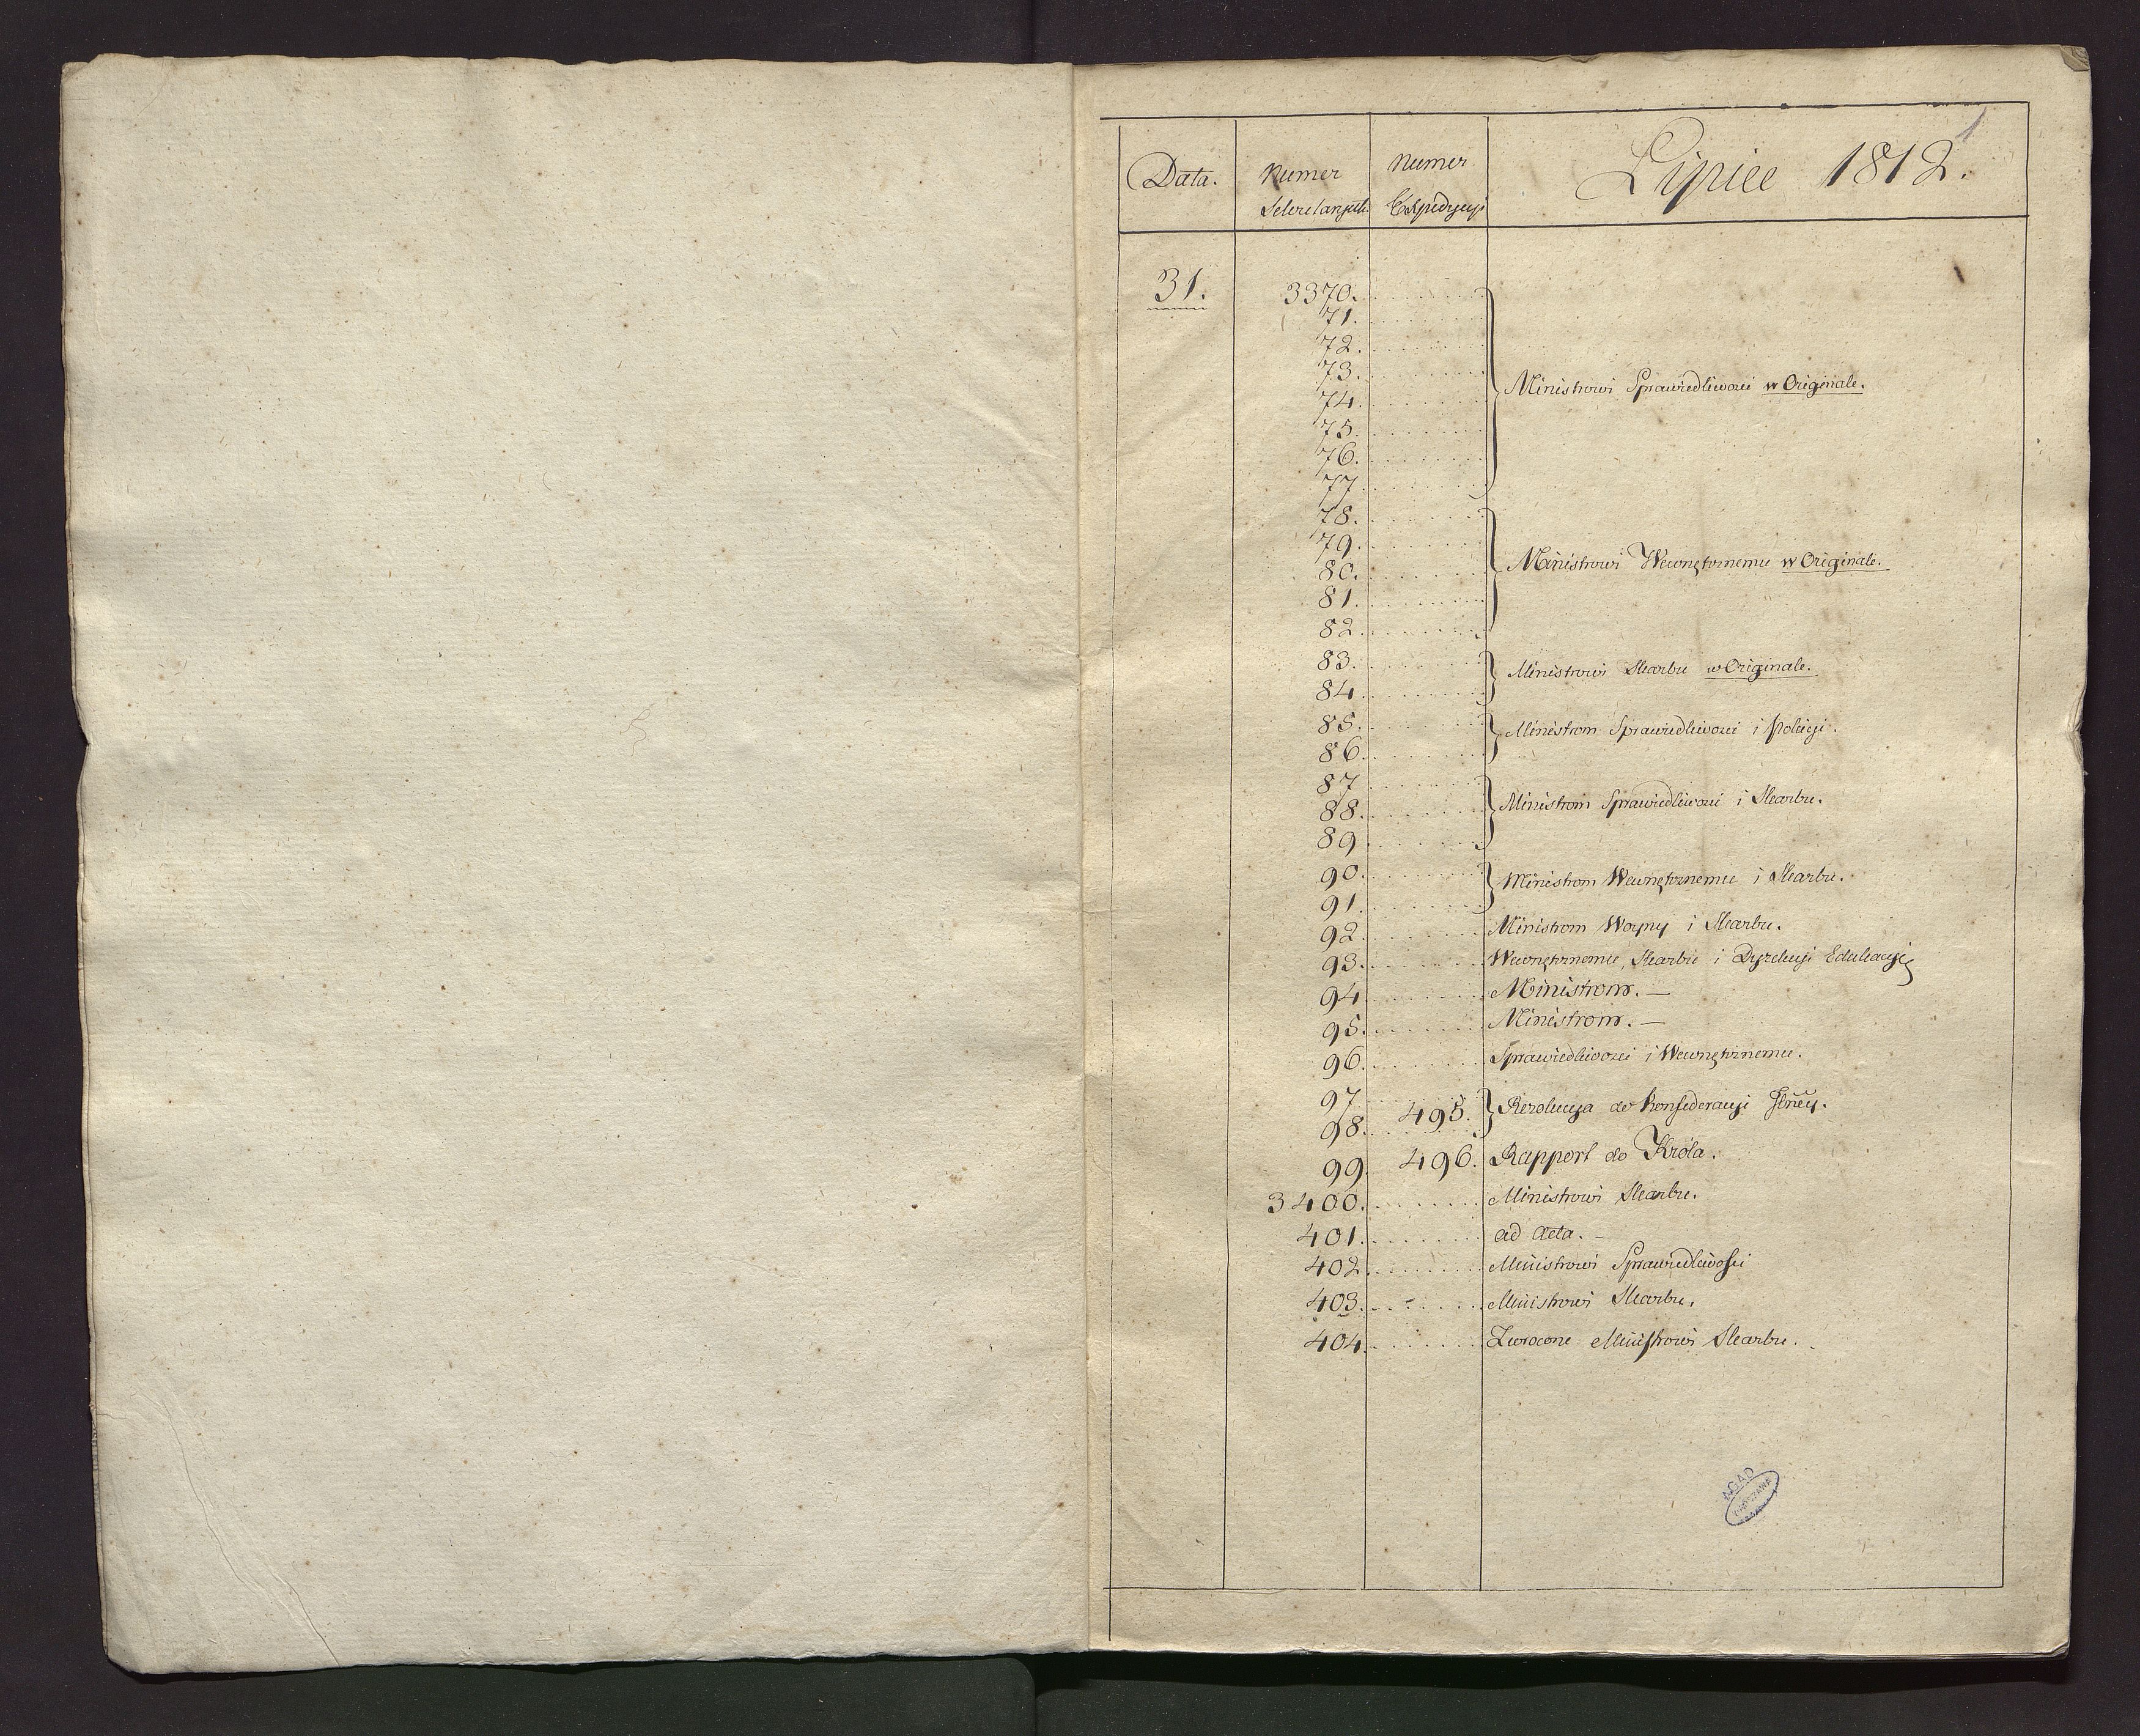 1
Data. Numer Numer Lipiec 1812.
Sekretaryat. Expedycyi
31. 3370.
71.
72.
73.
Ministrowi Sprawiedliwosci w Originale.
74.
75.
76.
77
78.
79.
Ministrowi Wewnętrznemu w Originale.
80.
81.
82.
83. Ministrowi Skarbu w Originale.
84.
85. Ministrom Sprawiedliwosci i Policyi.
86.
87
88. Ministrom Sprawiedliwosci i Skarbu.
89
90. Ministrom Wewnętrznemu i Skarbu.
91.
92. Ministrom Woyny i Skarbu.
93. Wewnętrznemu, Skarbu i Dyrekcyi Edukacyi
94 Ministrom. —
95. Ministrom. —
96. Sprawiedliwosci i Wewnętrznemu.
97
495. Rezolucya do Konfederacyi Glney.
98.
99. 496. Rapport do Króla.
3400. Ministrowi Skarbu.
401. ad Acta. —
402. Ministrowi Sprawiedliwosci
403. Ministrowi Skarbu.
404. Zwrócone Ministrowi Skarbu.
AGAD
WARSZAWA